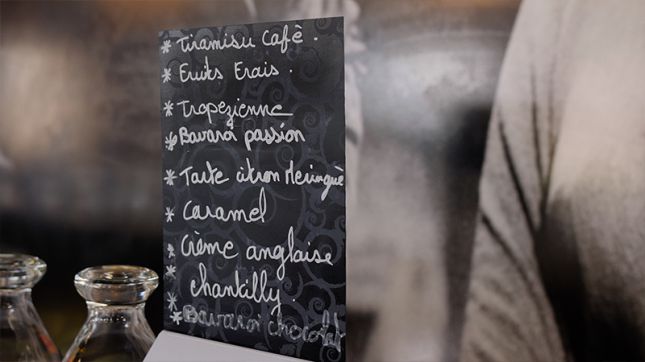 * Tiramisu Café.
* Fruits Frais.
* Tropezienne
* Bavaroi passion
* Tarte citron Meringué
* Caramel
* Crème anglaise
* chantilly.
* Bavaroi chocolat